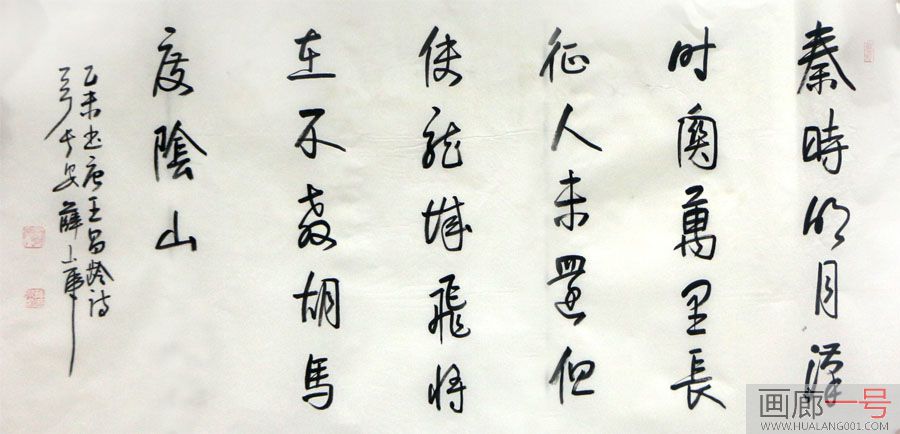 秦時明月漢
时關萬里長
征人未還但
使龍城飛将
在不教胡馬
度陰山
乙未书唐王昌龄诗
于长安薛小军
画廊一号
WWW.HUALANG001.COM